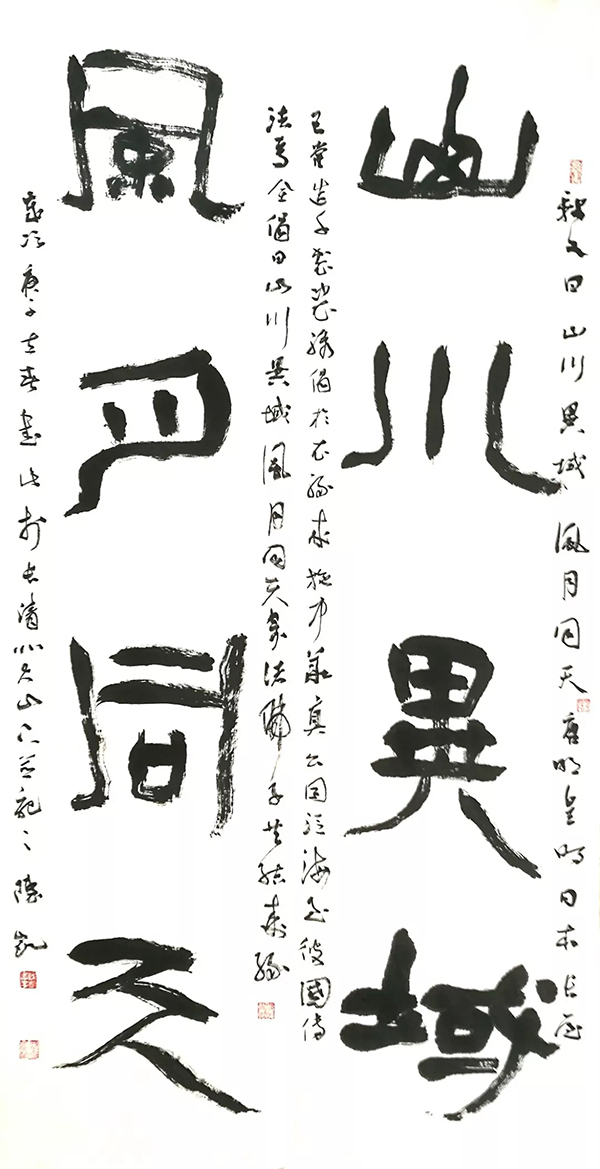 釋文曰山川異域風月同天唐明皇時日本長屋
山川異域
王嘗造千袈裟繡偈於衣緣來施中華真公因泛海至彼國傳
法焉全偈曰山川異域風月同天寄佛子共結來緣
風月同天
歲次庚子立春書此於長清山下並記之凱